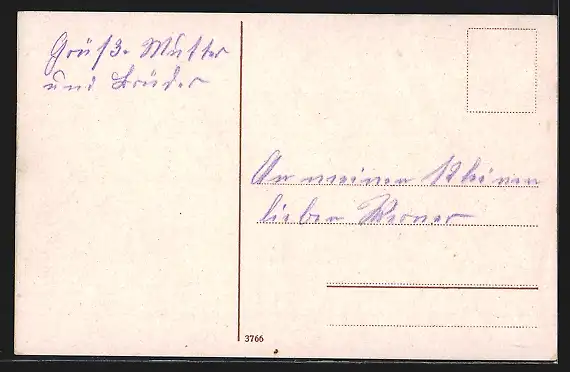 Grüß. Mutter
und Brüder
An meinen kleinen
lieben Werner
3766